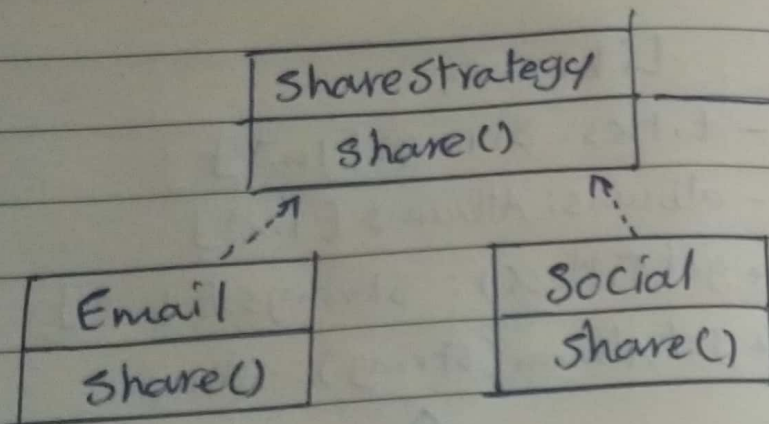 ShareStrategy
Share()
Email
Share()
Social
Share()